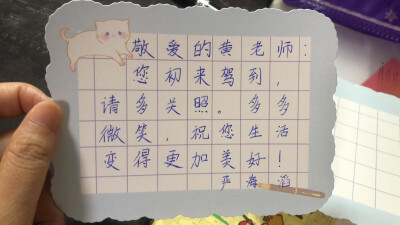 敬爱的黄老师：
您初来驾到，
请多关照。多多
微笑，祝您生活
变得更加美好！
严舜滔